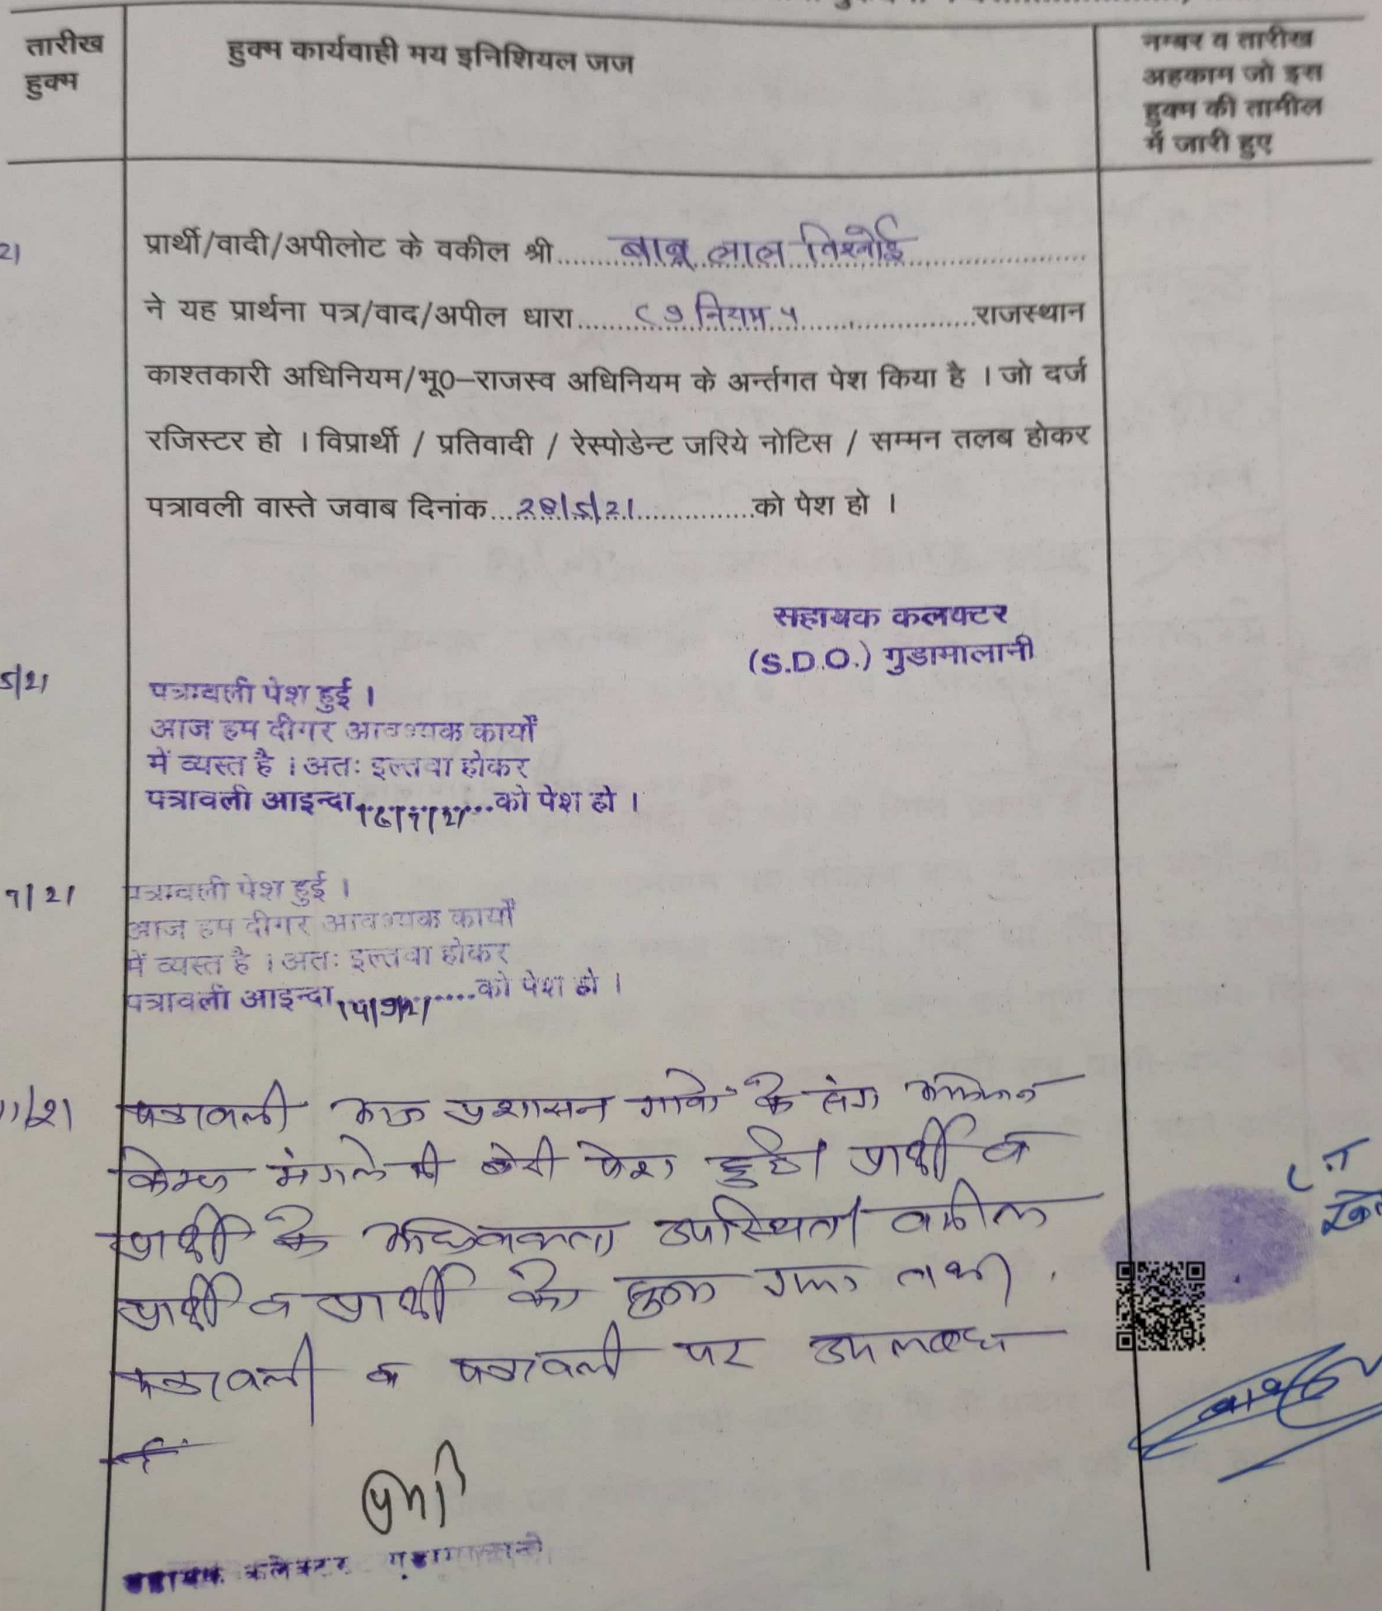 तारीख
हुक्म
हुक्म कार्यवाही मय इनिशियल जज
नम्बर व तारीख
अहकाम जो इस
हुक्म की तामील
में जारी हुए
21
प्रार्थी/वादी/अपीलोट के वकील श्री.....बाबू लाल विश्नोई.....
ने यह प्रार्थना पत्र/वाद/अपील धारा.....नियम ५.....राजस्थान
काश्तकारी अधिनियम/भू0–राजस्व अधिनियम के अर्न्तगत पेश किया है । जो दर्ज
रजिस्टर हो । विप्रार्थी / प्रतिवादी / रेस्पोडेन्ट जरिये नोटिस / सम्मन तलब होकर
पत्रावली वास्ते जवाब दिनांक...28/5/21.....को पेश हो ।
सहायक कलक्टर
(S.D.O.) गुडामालानी
5/21
पत्रावली पेश हुई ।
आज हम दीगर आवश्यक कार्यों
में व्यस्त है । अतः इल्तवा होकर
पत्रावली आइन्दा.....को पेश हो ।
16/7/21
7/21
पत्रावली पेश हुई ।
आज हम दीगर आवश्यक कार्यों
में व्यस्त है । अतः इल्तवा होकर
पत्रावली आइन्दा.....को पेश हो ।
14/9/21
11/21
पत्रावली आज प्रशासन गावों के संग अभियान
कैम्प मंगले की बेरी पेश हुई। प्रार्थी व
प्रार्थी के अधिवक्ता उपस्थित। वकील
प्रार्थी व प्रार्थी को सुना गया तथा
पत्रावली व पत्रावली पर उपलब्ध
सहायक कलेक्टर गुडामालानी